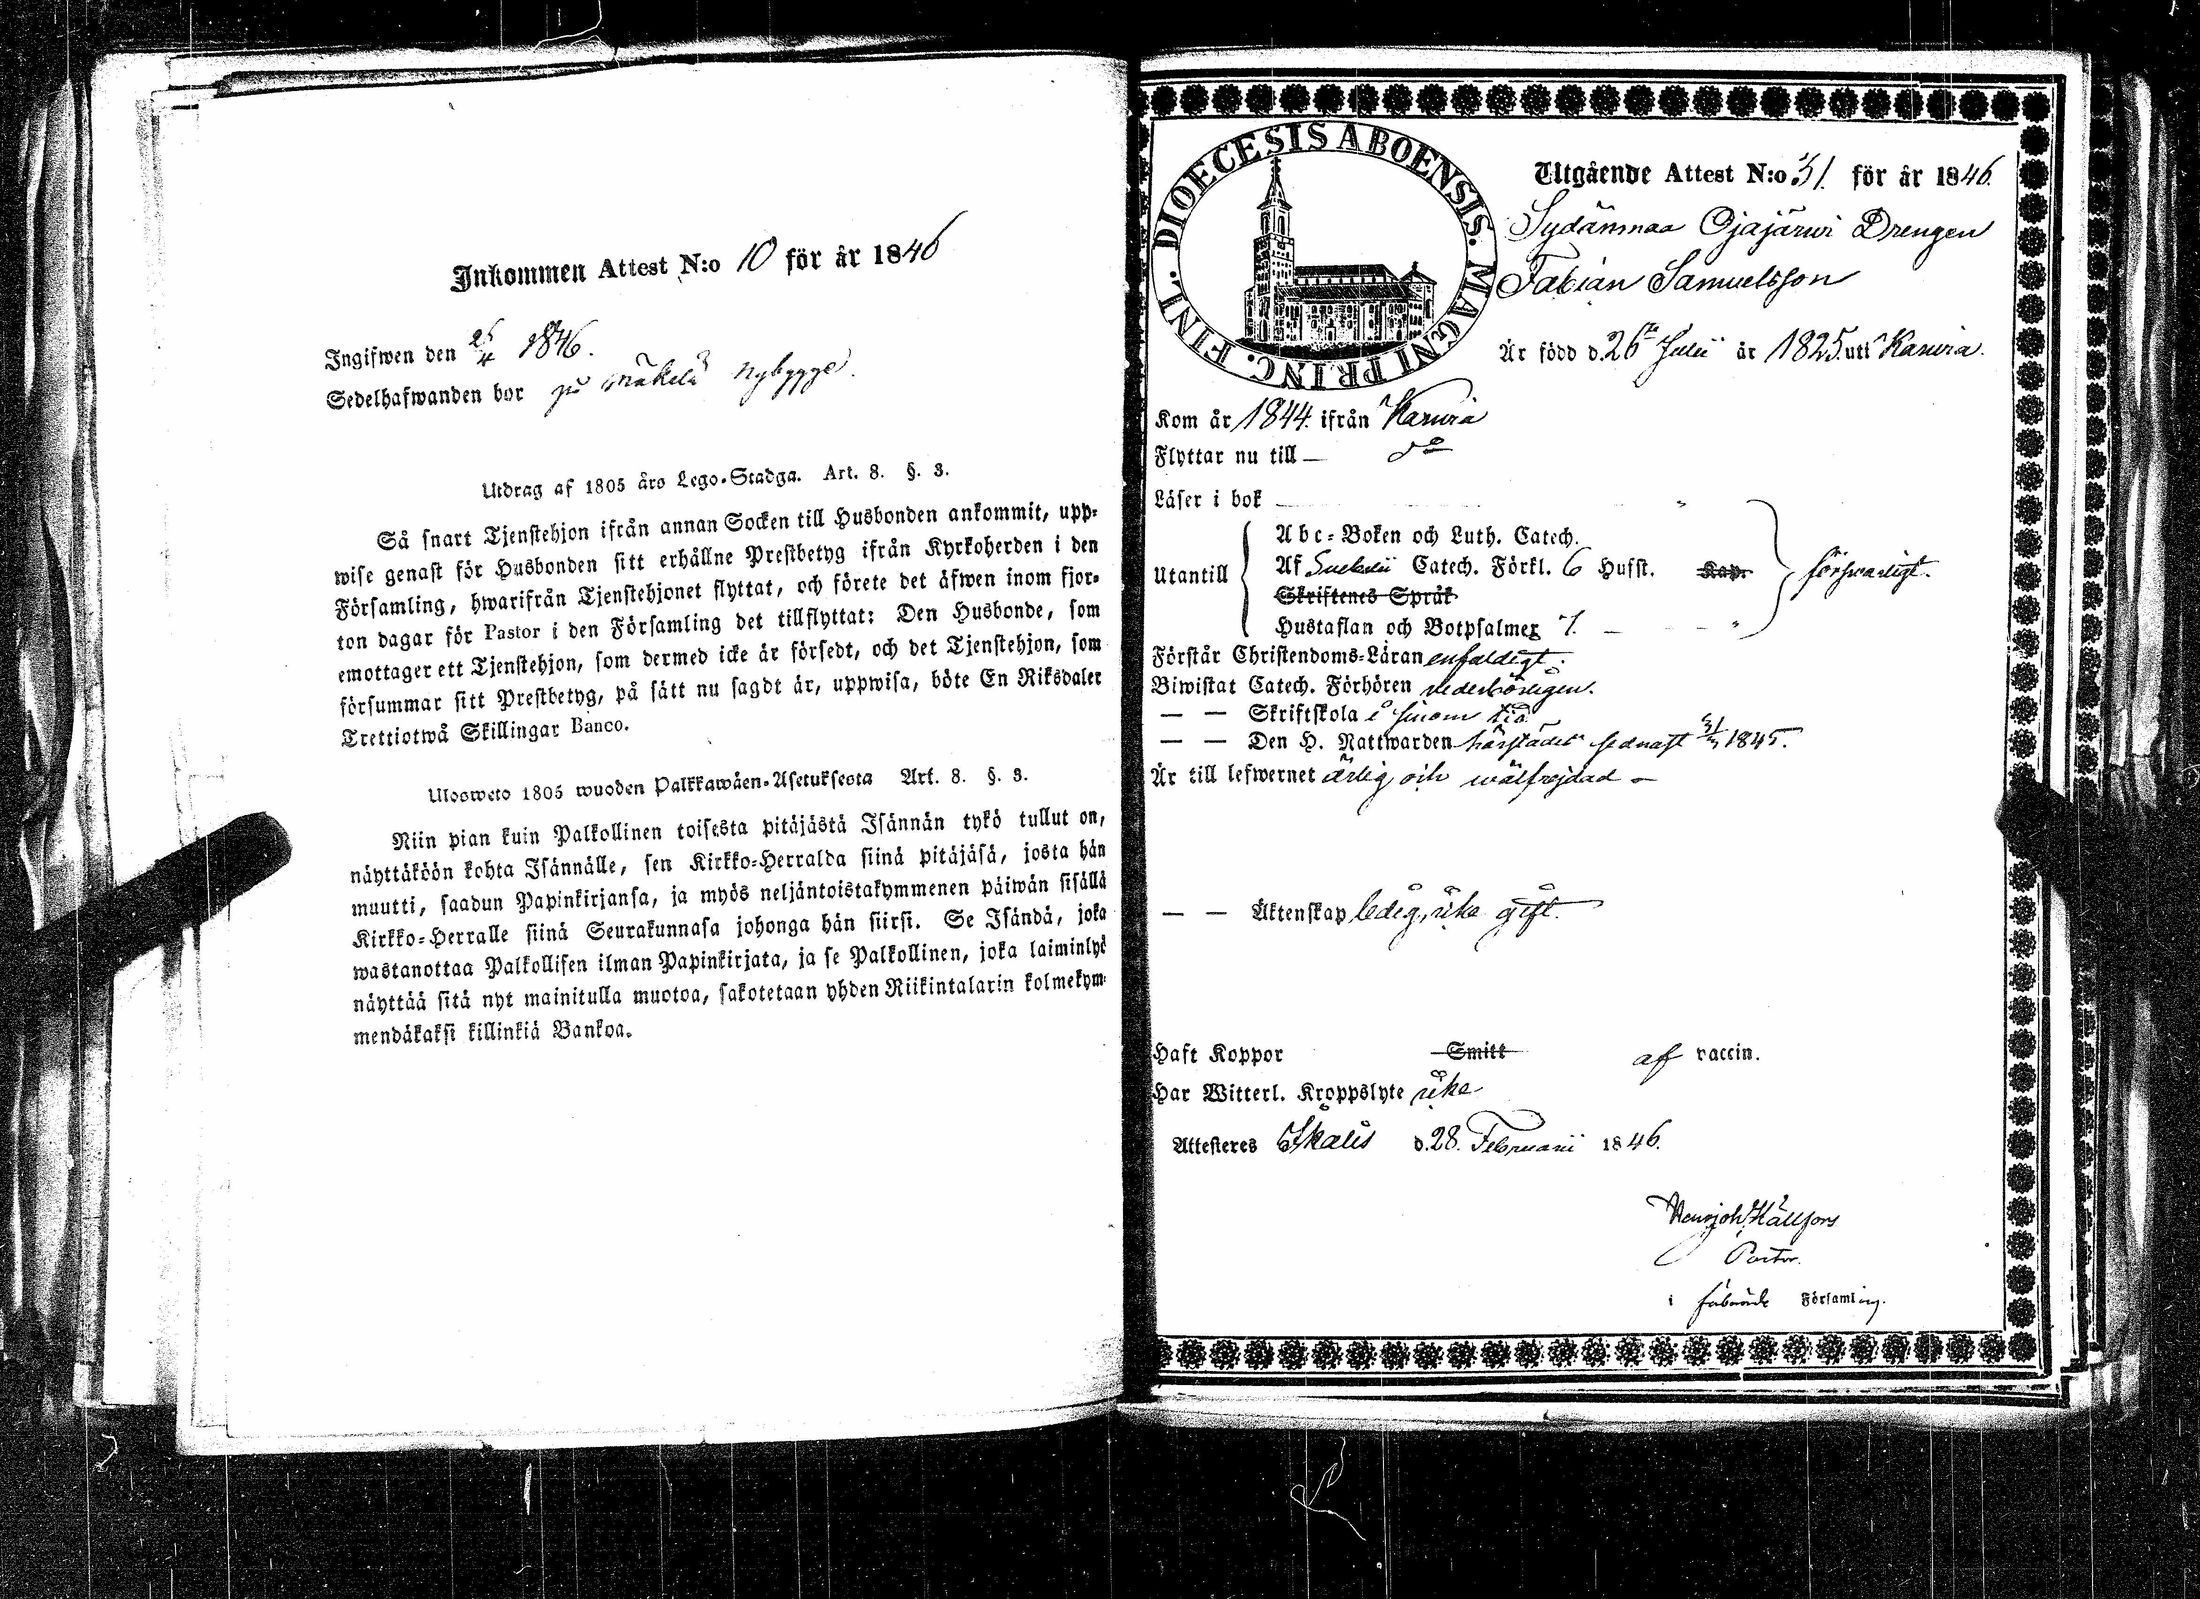 Inkommen Attest N:o 10 för år 1846
Ingifwen den 25/4 1846.
Sedelhafwanden bor på Mäkelä nybygge.
Utdrag af 1805 års Lego-Stadga. Art. 8. §. 3.
Så snart Tjenstehjon ifrån annan Socken till Husbonden ankommit, upp-
wise genast för Husbonden sitt erhållne Prestbetyg ifrån Kyrkoherden i den
Församling, hwarifrån Tjenstehjonet flyttat, och förete det äfwen inom fjor-
ton dagar för Pastor i den Församling det tillflyttat: Den Husbonde, som
emottager ett Tjenstehjon, som dermed icke är försedt, och det Tjenstehjon, som
försummar sitt Prestbetyg, på sätt nu sagdt är, uppwisa, böte En Riksdaler
Trettiotwå Skillingar Banco.
Ulosweto 1805 wuoden Palkkawäen-Asetuksesta Art. 8. §. 3.
Niin pian kuin Palkollinen toisesta pitäjästä Isännän tykö tullut on,
näyttäköön kohta Isännälle, sen Kirkko-Herralda siinä pitäjäsä, josta hän
muutti, saadun Papinkirjansa, ja myös neljäntoistakymmenen päiwän sisällä
Kirkko-Herralle siinä Seurakunnasa johonga hän siirsi. Se Isändä, joka
wastanottaa Palkollisen ilman Papinkirjata, ja se Palkollinen, joka laiminlyö
näyttää sitä nyt mainitulla muotoa, sakotetaan yhden Riikintalarin kolmekym-
mendäkaksi killinkiä Bankoa.
DIOECESIS ABOENSIS. MAGNI PRINC. FINL.
Utgående Attest N:o 31. för år 1846.
Sydänmaa Ojajärwi Drengen
Fabian Samuelsson
Är född d. 26te Julii år 1825. uti Karvia.
Kom år 1844. ifrån Karvia
Flyttar nu till — do
Läser i bok
Utantill
Abc-Boken och Luth. Catech.
Af Svebelii Catech. Förkl. 6 Hufst. Kap. försvarligt.
Skriftenes Språk
Hustaflan och Botpsalmer 7.
Förstår Christendoms-Läran enfaldigt.
Biwistat Catech. Förhören vederbörligen.
— — Skriftskola i sinom tid
— — Den H. Nattwarden härstädes sednast 1845.
Är till lefwernet ärlig och wälfrejdad —
— — Äktenskap ledig, icke gift.
Haft Koppor Smitt af vaccin.
Har Witterl. Kroppslyte icke
Attesteres Ikalis d. 28. Februarii 1846.
Henr Joh Hällfors
Pastor.
i förberörde Församling.